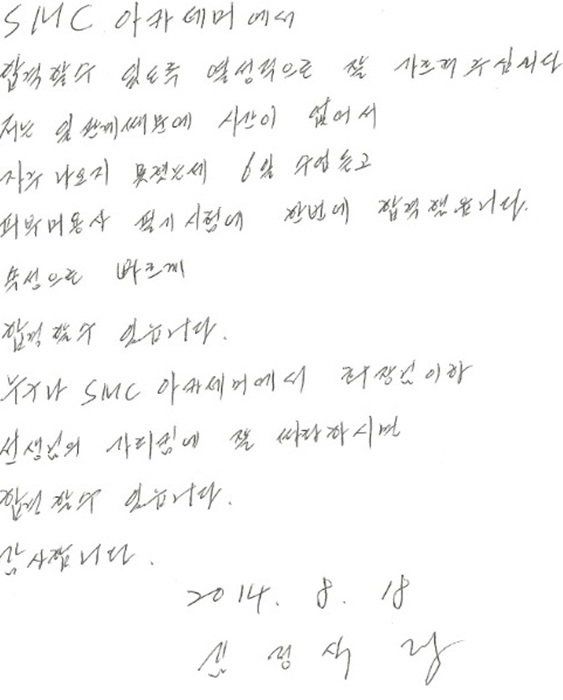 SMC 아카데미에서
합격할수 있도록 열성적으로 잘 가르켜 주십니다
저는 일 관계때문에 시간이 없어서
자주 나오지 못했는데 6일 수업듣고
피부미용사 필기시험에 한번에 합격했읍니다.
속성으로 빠르게
합격할수 있읍니다.
누구나 SMC 아카데미에서 원장님이하
선생님의 가리킴에 잘 따라하시면
합격할수 있읍니다.
감사합니다.
2014. 8. 18
정석